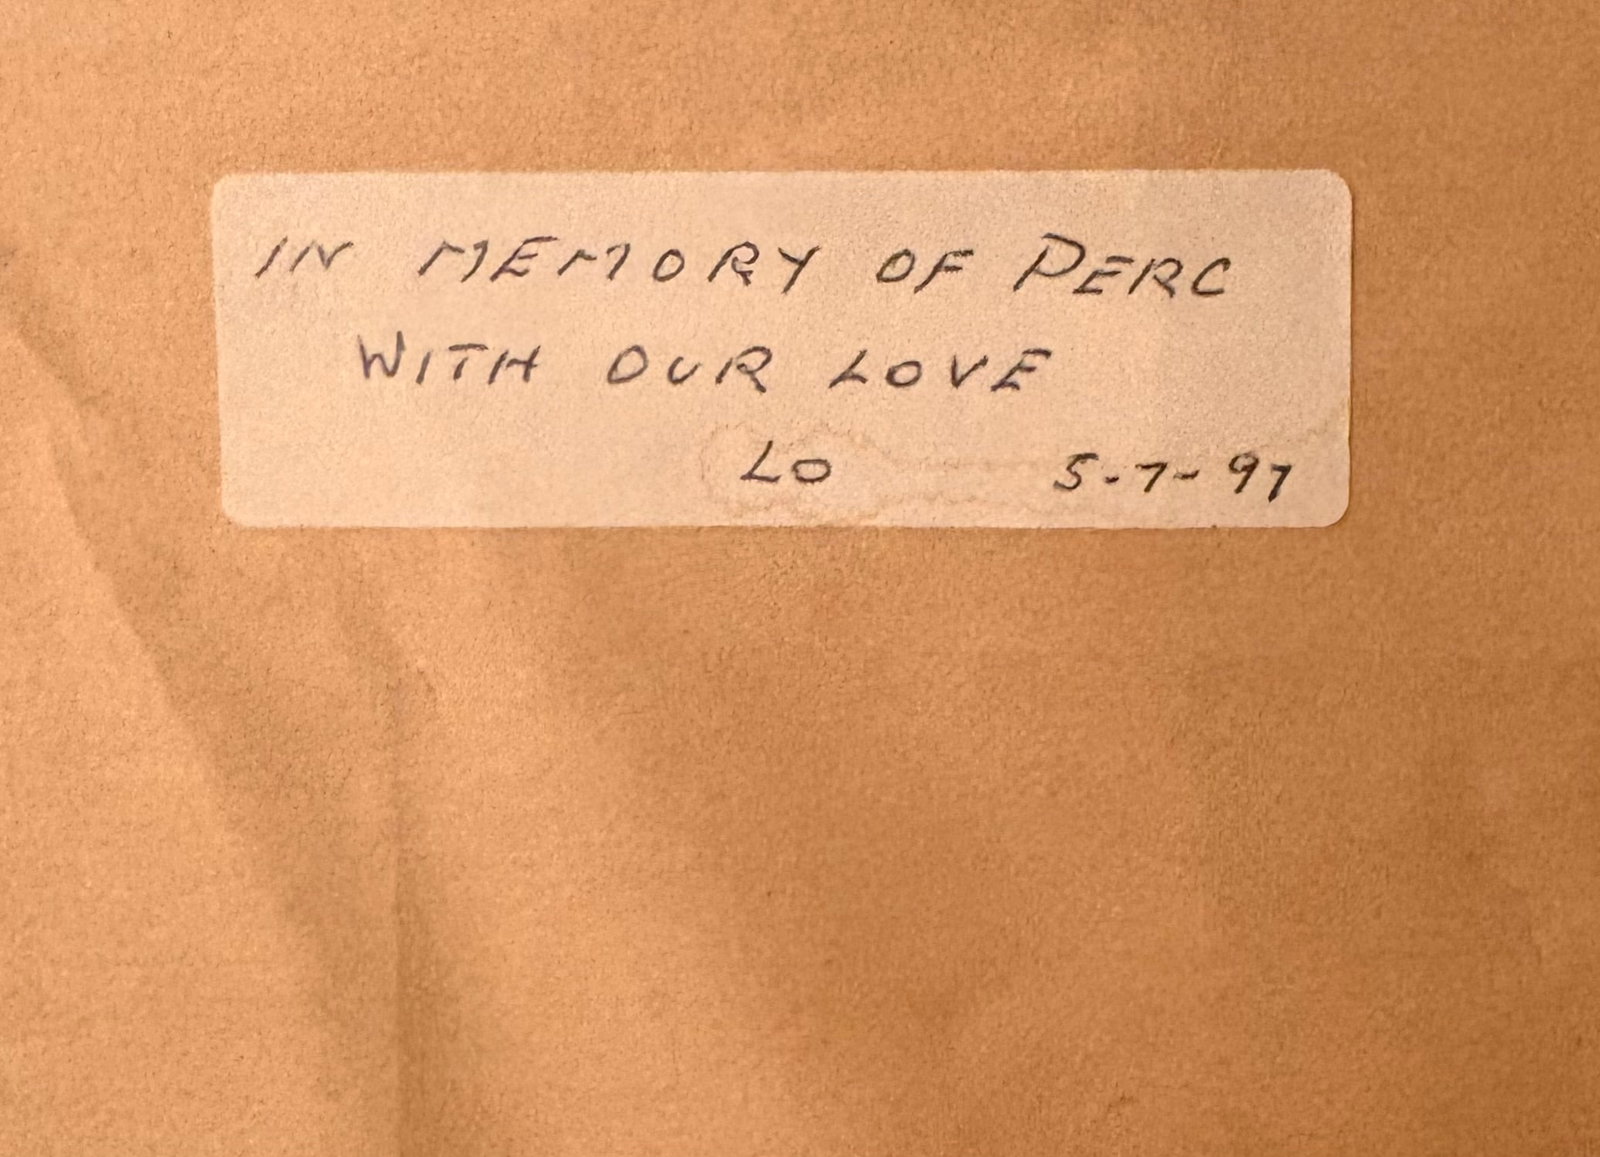 IN MEMORY OF PERC
WITH OUR LOVE
LO 5-7-97